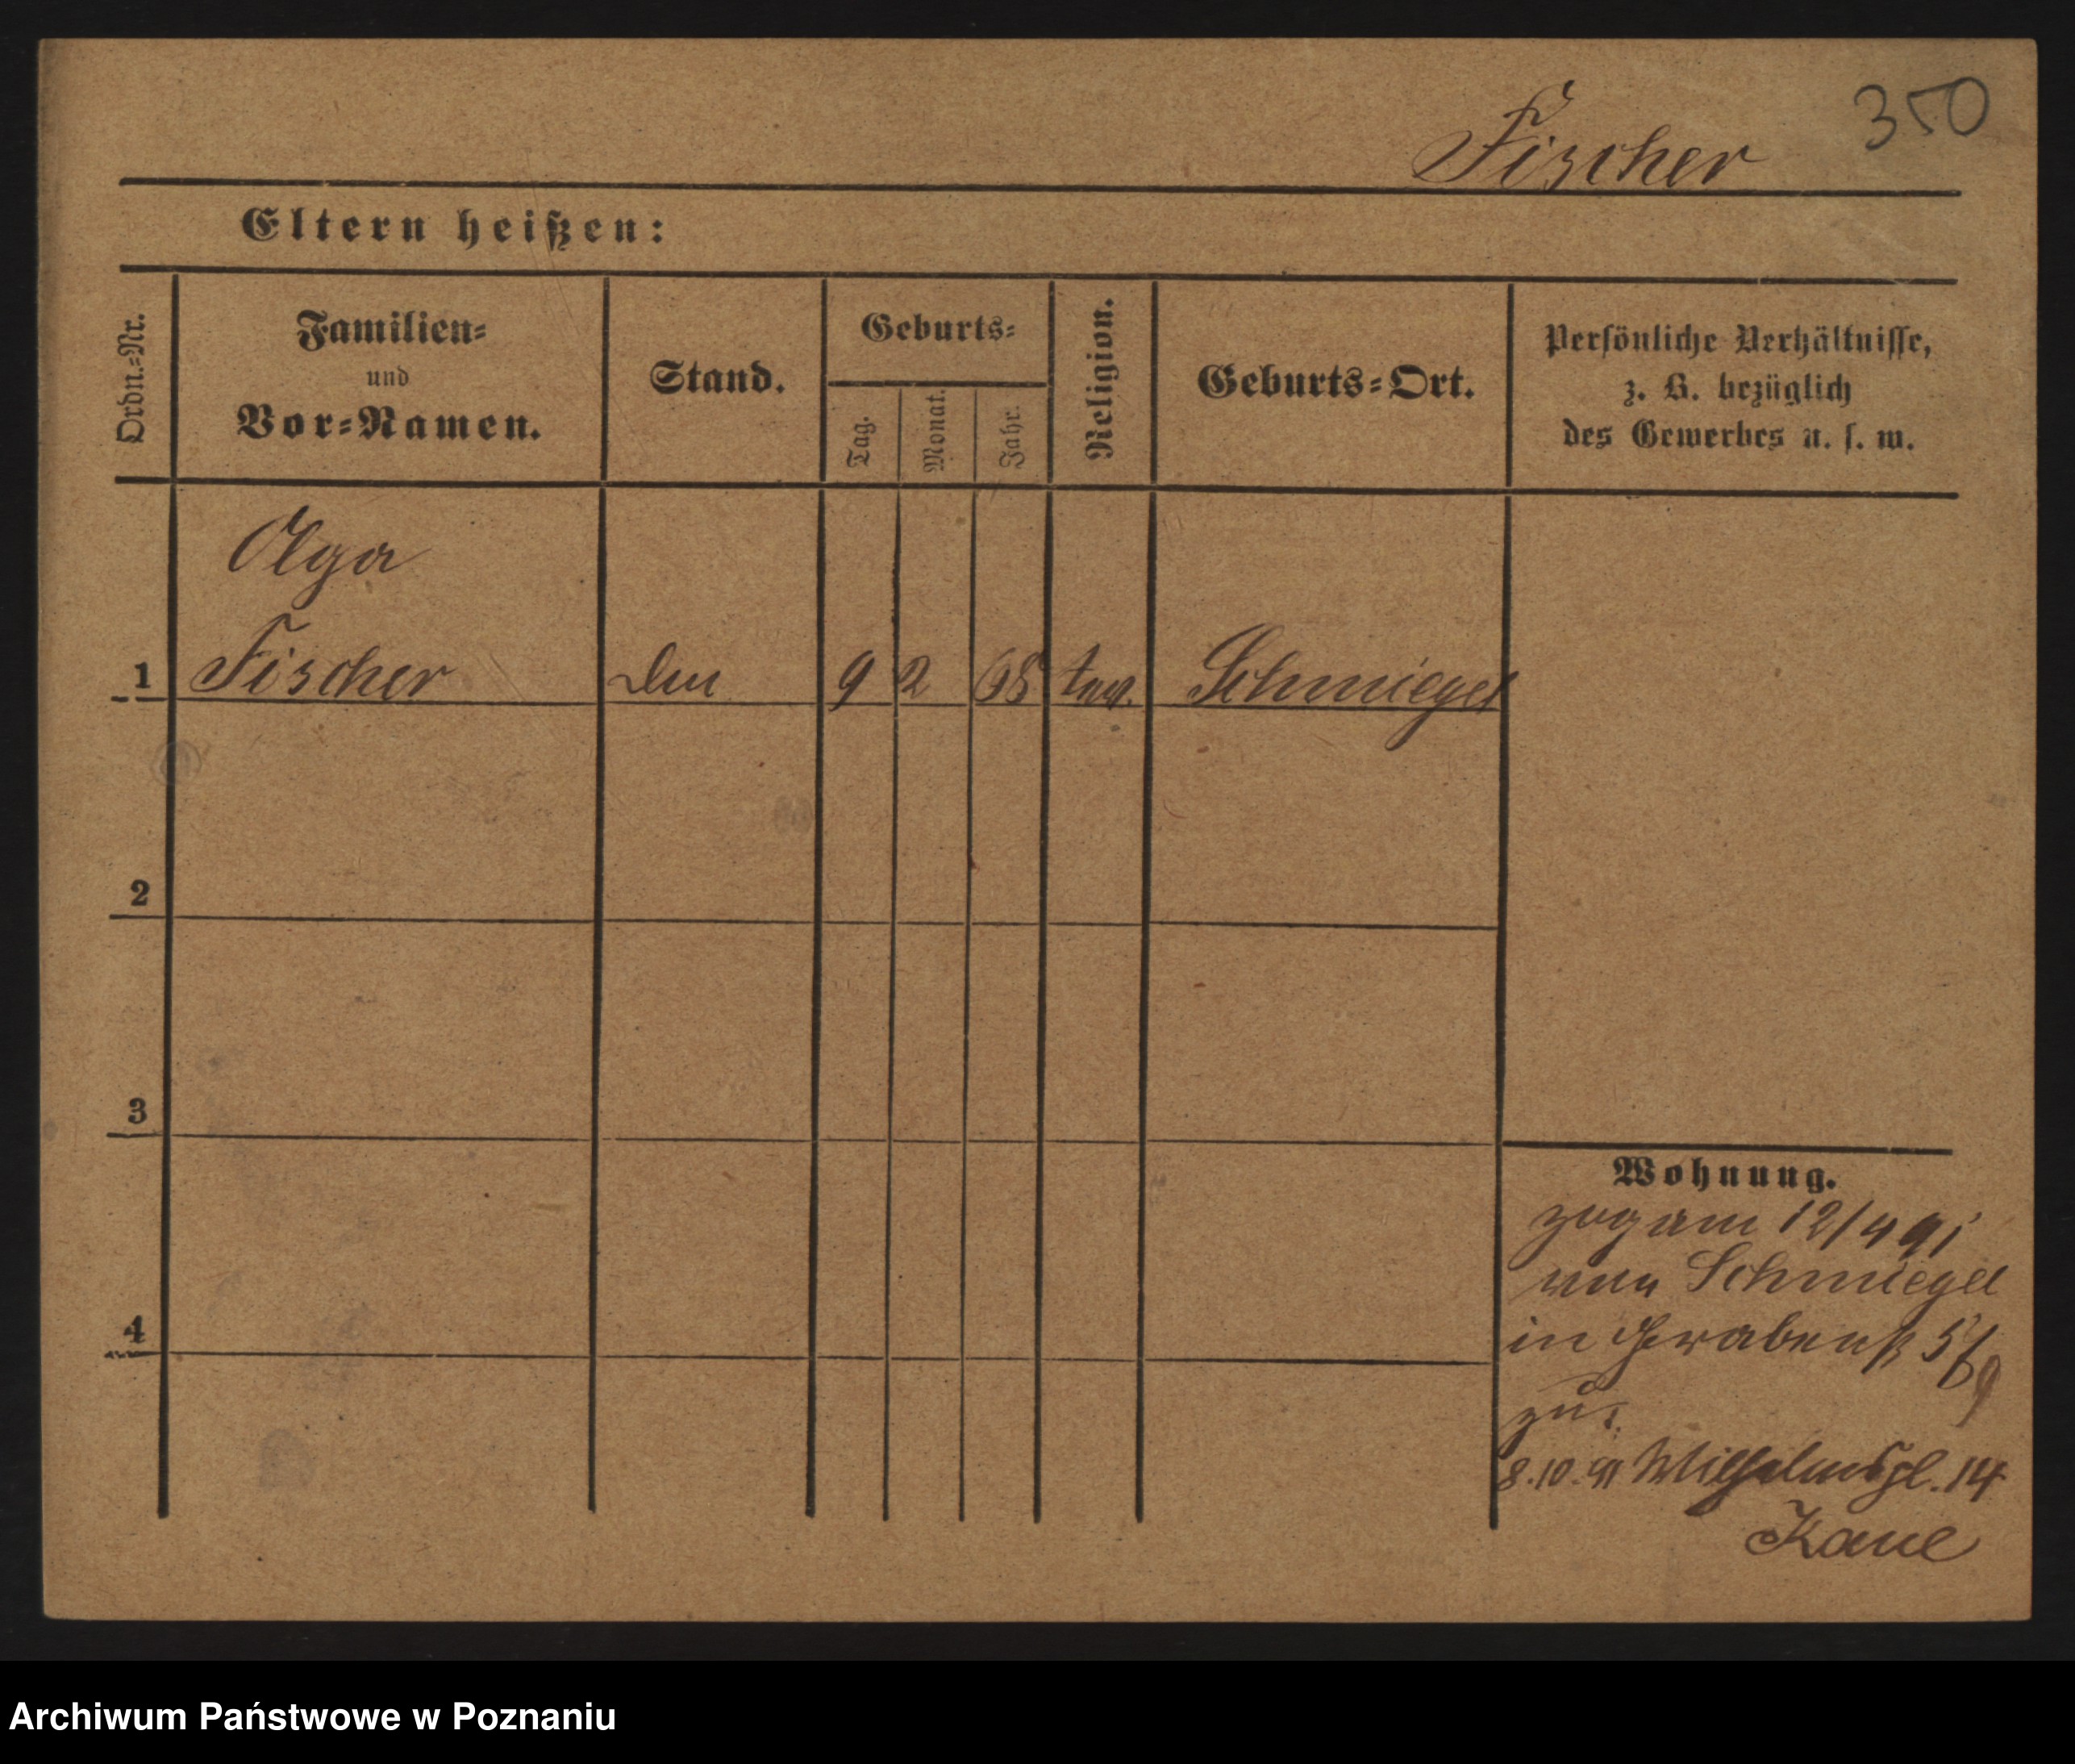 350
Fischer
Eltern heißen:
Ordn.=Nr.
Familien=
und
Vor=Namen.
Stand.
Geburts=
Tag.
Monat.
Jahr.
Religion.
Geburts=Ort.
Persönliche Verhältnisse,
z. B. bezüglich
des Gewerbes u. s. w.
Olga
1 Fischer 9 2 68 Schmiegel
2
3
4
Wohnung.
zog am 12/4 91
von Schmiegel
in Grabenstr 5/6
zu.
8.10.91 Wilhelmspl. 14
Archiwum Państwowe w Poznaniu